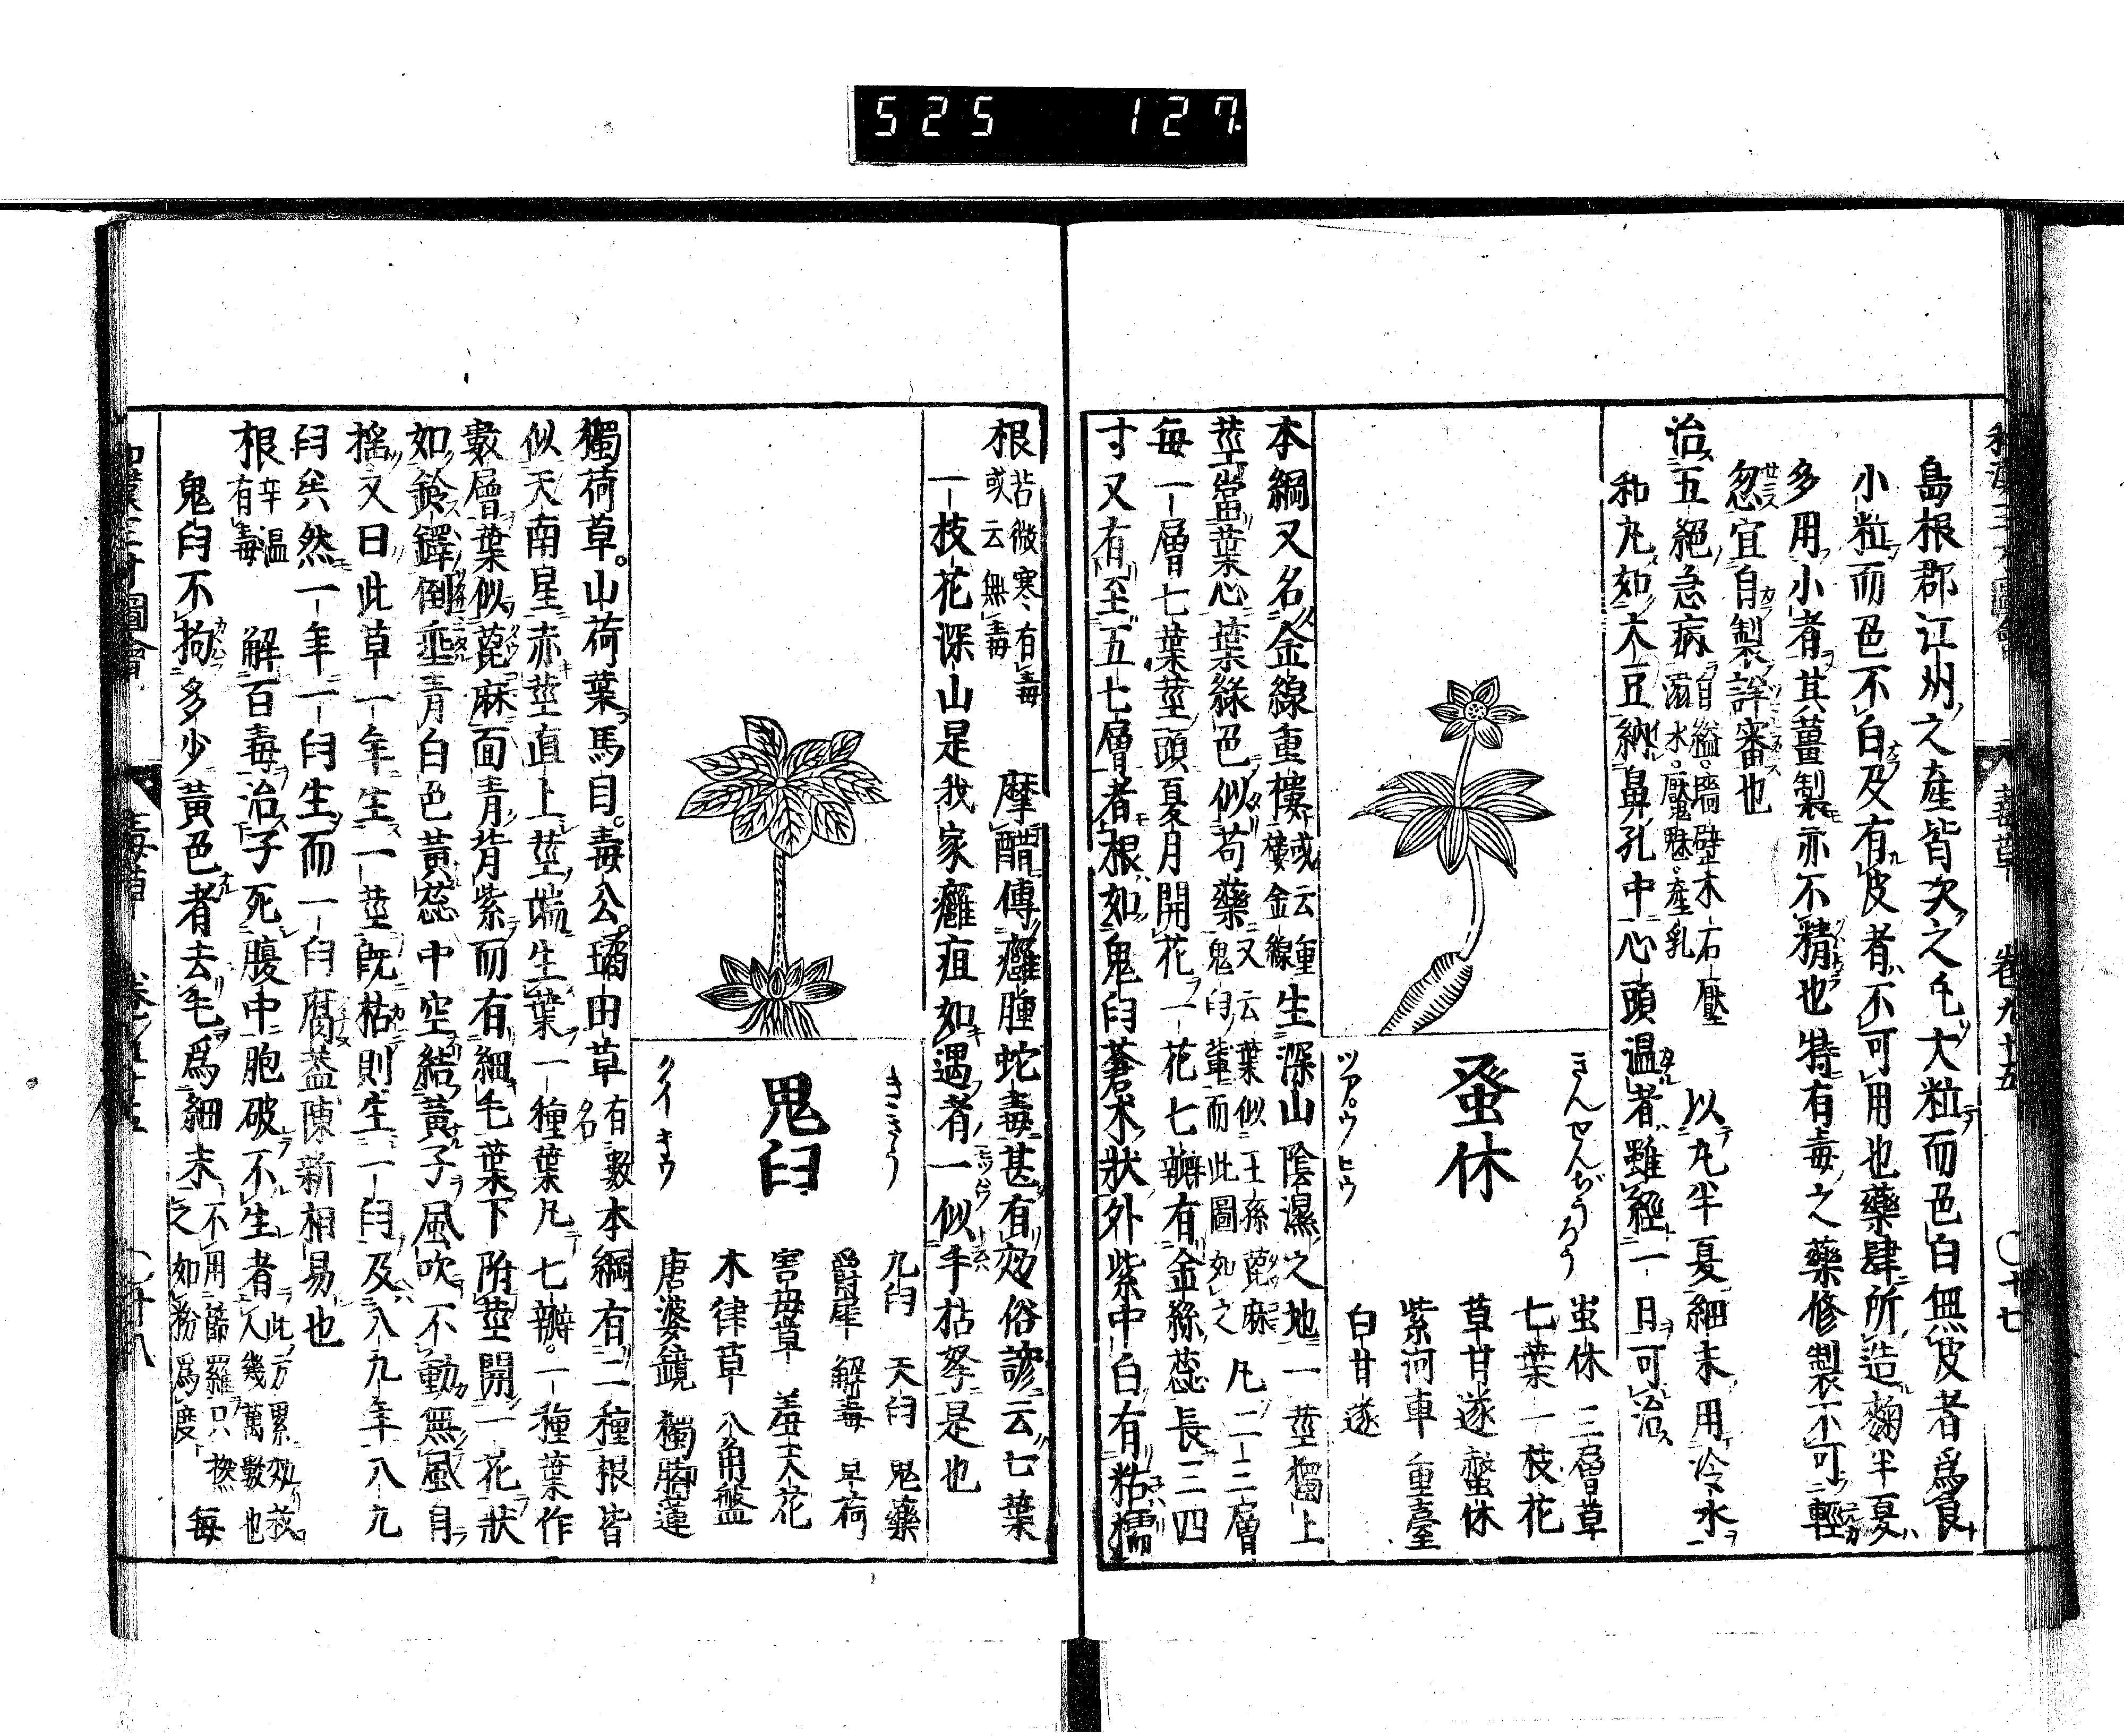 525 127
和漢三才圖會 毒草 卷九十五 ○十七
島根郡江州之產皆次之乇大粒而色白無皮者爲良
小粒而色不白及有皮者不可用也藥肆所造麹半夏
多用小者其薑製亦不精也特有毒之藥修製不可輕
忽宜自製詳審也
治五絕急病自縊墻壁木石壓
溺水魘魅產乳
以半夏細末用冷水
和丸如大豆納鼻孔中心頭温者雖經一日可治
きんせんぢうろう
蚤休
ツアウヒウ
蚩休 三層草
七葉一枝花
草甘遂 螫休
紫河車 重臺
白甘遂
本綱又名金線重樓或云重樓金線生深山陰濕之地一莖獨上
莖當葉心葉綠色似芍藥又云葉似王孫蓖麻
鬼臼輩而此圖如之
凡二三層
每一層七葉莖頭夏月開花一花七瓣有金絲蕊長三四
寸又有至五七層者根如鬼臼蒼朮狀外紫中白有粘糯
根苦微寒有毒
或云無毒
摩醋傅癰腫蛇毒甚有效俗諺云七葉
一枝花深山是我家癰疽如遇者一似手拈拏是也
きさう
鬼臼
クイキウ
九臼 天臼 鬼藥
爵犀 解毒 旱荷
害母草 羞天花
木律草 八角盤
唐婆鏡 獨脚蓮
獨荷草 山荷葉 馬目 毒公 璚田草有數名本綱有二種根皆
似天南星赤莖直上莖端生葉一種葉凡七瓣一種葉作
數層葉似蓖麻面青背紫而有細毛葉下附莖開一花狀
如鈴鐸倒埀青白色黃蕊中空結黃子風吹不動無風自
搖又曰此草一年生一莖既枯則生一臼及八九年八九
臼矣然一年一臼生而一臼腐蓋陳新相易也
根辛温
有毒
解百毒治子死腹中胞破不生者此方累效救
人幾萬數也
鬼臼不拘多少黃色者去毛爲細末不用篩羅只撚
之如粉爲度
每
和漢三才圖會 毒草 卷ノ九十五 ○十八